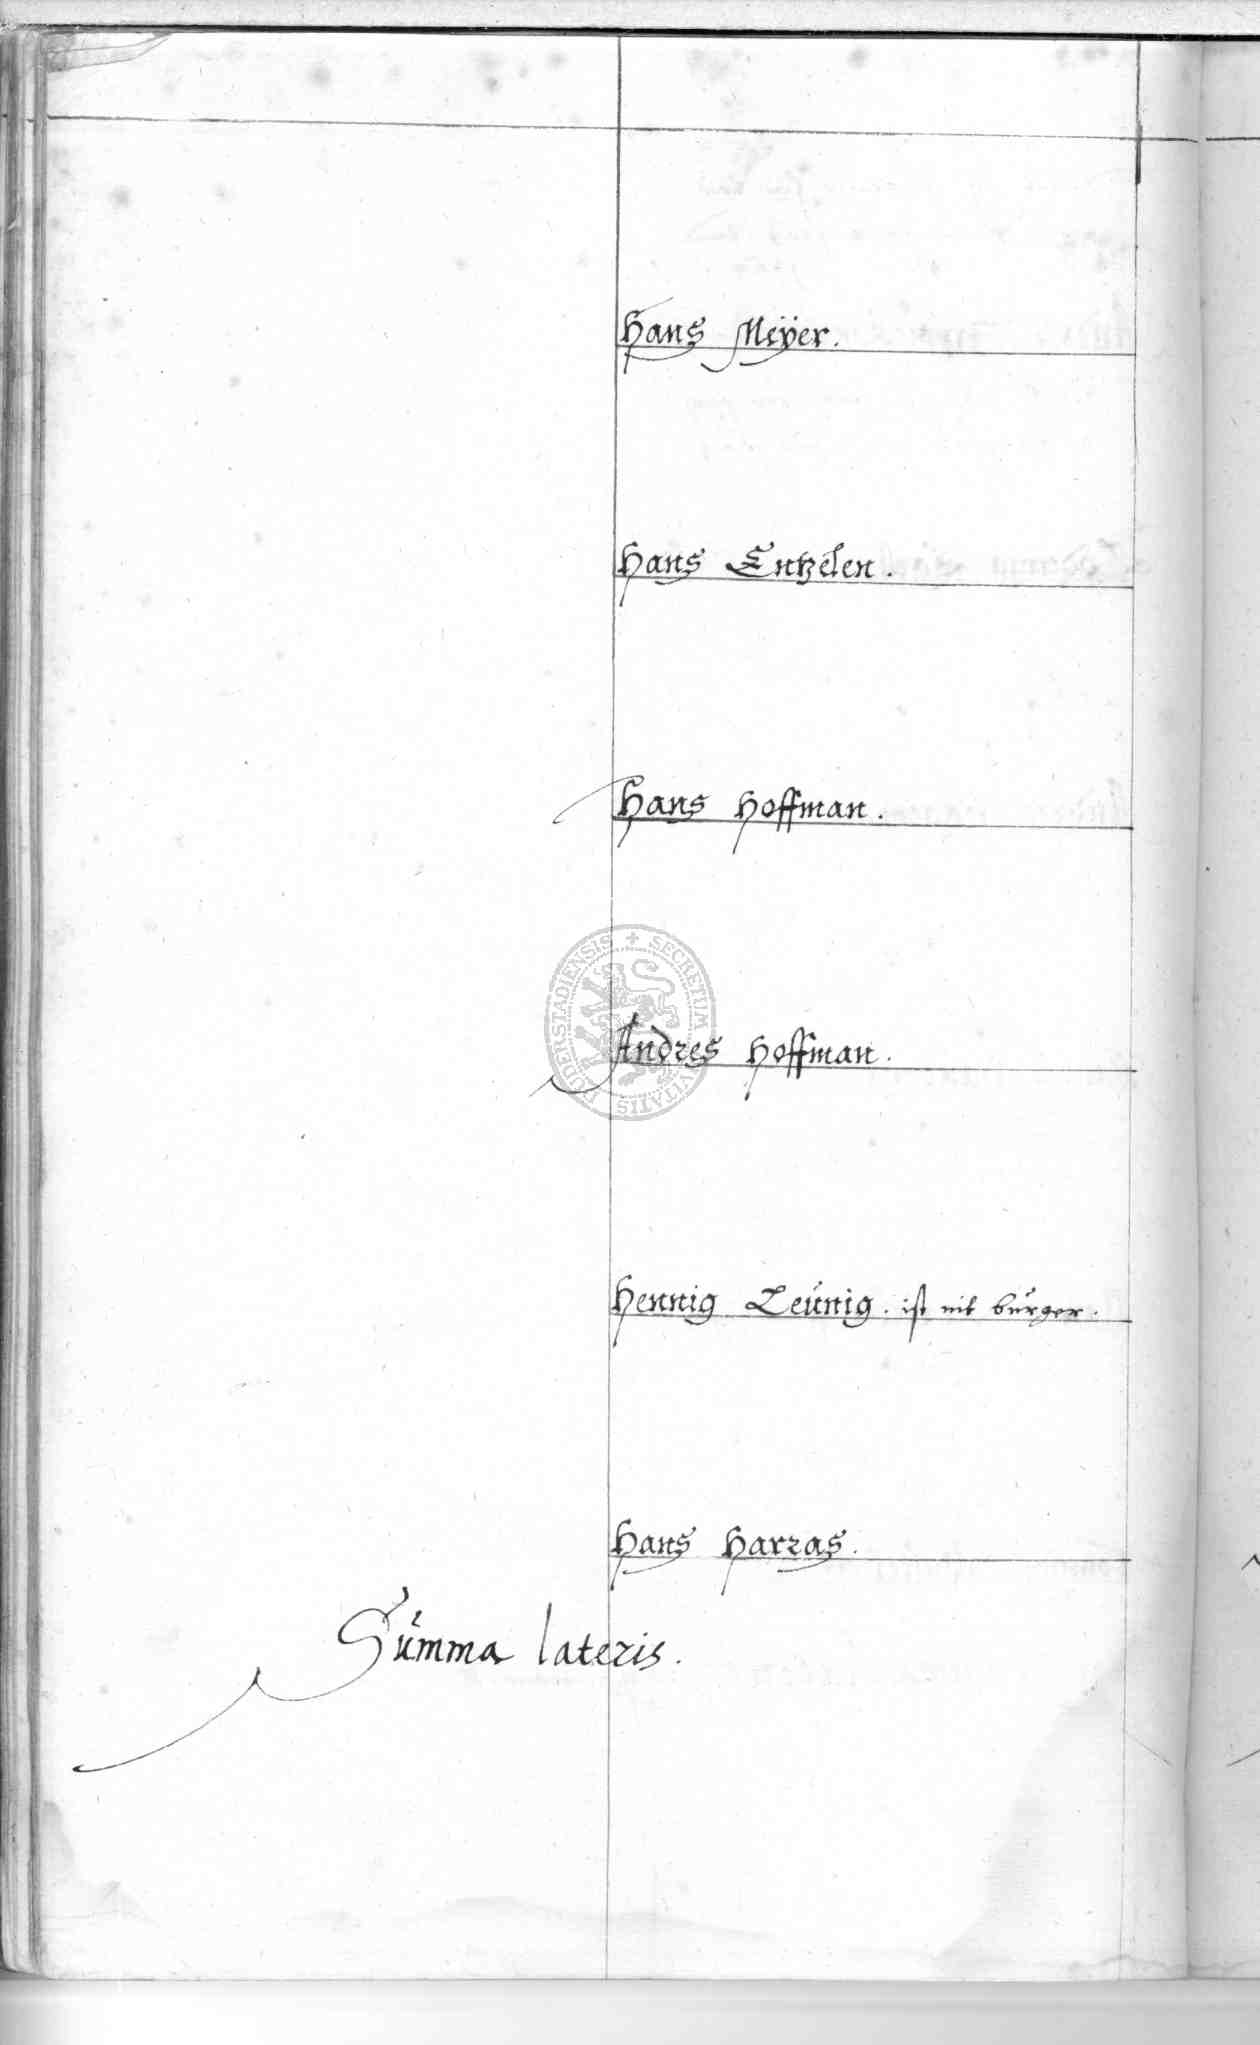 Hans Meÿer.
Hans Entzelen.
Hans Hoffman.
Andres Hoffman.
Hennig Leünig. ist nit bürger.
Hans Harras.
Summa lateris.
SECRETUM CIVITATIS DUDERSTADIENSIS